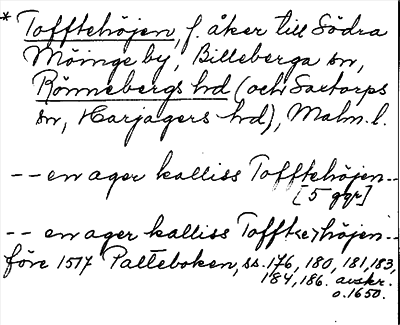 * Tofftehöjen, f. åker till Södra
Möinge by, Billeberga sn,
Rönnebergs hd (och Saxtorps
sn, Harjagers hd), Malm. l.
-- en ager kalliss Tofftehöjen --
[5 ggr]
-- en ager kalliss Tofft<e>höjen --
före 1517 Palteboken, ss. 176, 180, 181, 183,
184, 186. avskr.
o. 1650.